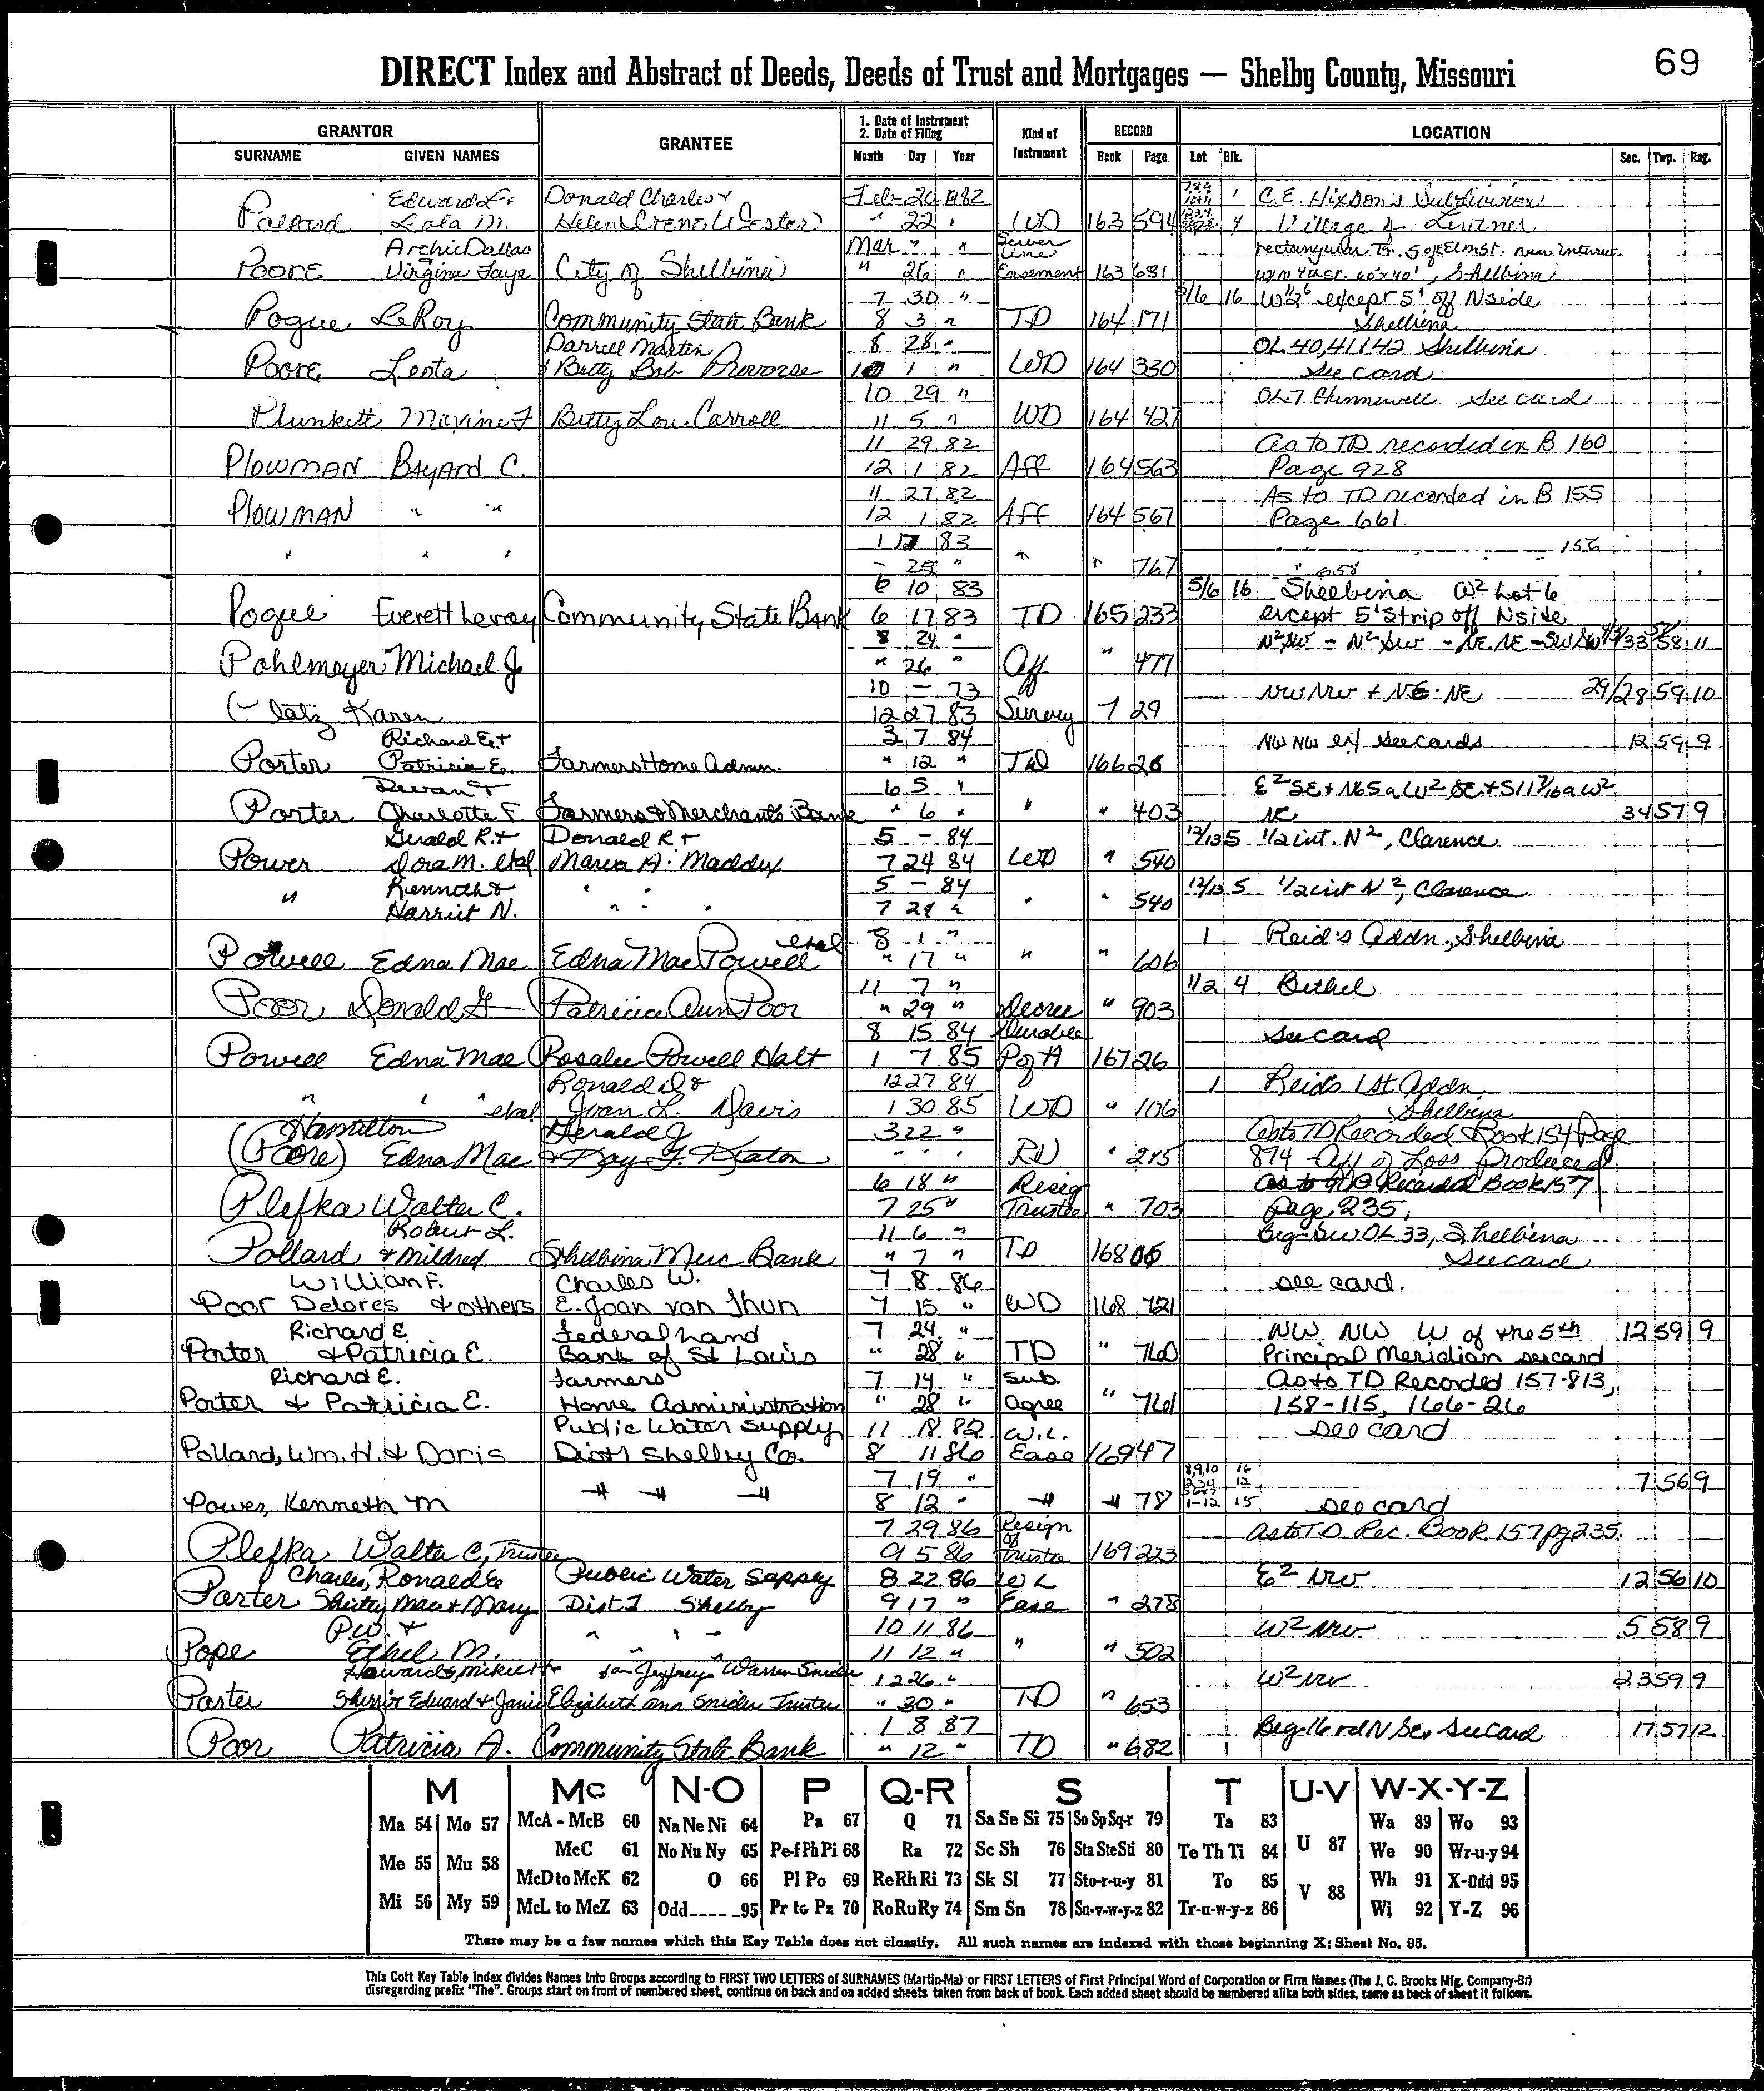 69
DIRECT Index and Abstract of Deeds, Deeds of Trust and Mortgages — Shelby County, Missouri
GRANTOR GRANTEE 1. Date of Instrument 2. Date of Filing Kind of Instrument RECORD LOCATION
SURNAME GIVEN NAMES Month Day Year Book Page Lot Blk. Sec. Twp. Rng.
Edward F. Donald Charles + Feb 20 1982 1 C.E. Hixson's Subdivision
Pollard Lola M. Helen Irene " 22 " WD 163 594 4 Village of
Archie Dallas Mar " " Sewer Line rectangular Tr. S of Elm St. near intersect.
Poore Virginia Faye City of Shelbina " 26 " Easement 163 681 40'x40', Shelbina
7 30 " 5/6 16 W½ 6 except 5' off N side
Pogue LeRoy Community State Bank 8 3 " TD 164 171 Shelbina
Darrell Martin 8 28 " OL 40, 41 & 42 Shelbina
Poore Leota & Betty Bob Provorse 10 1 " WD 164 330 see card
10 29 " OL 7 Hunnewell see card
Plunkett Maxine F Betty Lou Carroll 11 5 " WD 164 427
11 29 82 As to TD recorded in B 160
Plowman Bayard C. 12 1 82 Aff 164 563 Page 928
11 27 82 As to TD recorded in B 155
Plowman " " 12 1 82 Aff 164 567 Page 661
1 17 83 " " 156
" " " - 25 " " " 767 " 658
6 10 83 5/6 16 Shelbina W² Lot 6
Pogue Everett Leroy Community State Bank 6 17 83 TD 165 233 except 5' Strip off N side
8 24 " N²SW - N²SW - NE NE - SW SW 33 58 11
Pohlmeyer Michael J. " 26 " Aff " 477
10 — 73 NW NW + NE NE 29/28 59 10
Platz Karen 12 27 83 Survey 7 29
Richard E. + 3 7 84 NW NW ex see cards 12 59 9
Porter Patricia E. Farmers Home Admn. " 12 " TD 166 26
Devan + 6 5 " E² SE + N 65 a W² SE + S 11 7/16 a W²
Porter Charlotte F. Farmers & Merchants Bank " 6 " " " 403 NE 34 57 9
Gerald R. + Donald R + 5 — 84 12/13 5 1/2 int. N², Clarence
Power Dora M. etal Maria A. Maddex 7 24 84 WD " 540
Kenneth & " " 5 — 84 12/13 5 1/2 int N², Clarence
" Harriet N. " " " 7 24 " " " 540
etal 8 1 " 1 Reid's Addn., Shelbina
Powell Edna Mae Edna Mae Powell " 17 " " " 606
11 7 " 1/2 4 Bethel
Poor Donald G Patricia Ann Poor " 29 " Decree " 903
8 15 84 Durable see card
Powell Edna Mae Rosalee Powell Halt 1 7 85 P of A 167 26
Ronald D & 12 27 84 1 Reid's 1st Addn,
" " " etal Joan L. Davis 1 30 85 WD " 106 Shelbina
Hamilton Gerald J. 3 22 " As to TD Recorded Book 154 Page
(Poore) Edna Mae & Kay F. Keaton " " " RD " 215 874 - Aff of Loss Produced
6 18 " Resig As to TD Recorded Book 157
Plefka Walter C. 7 25 " Trustee " 703 Page 235,
Robert L. 11 6 " Beg SW OL 33, Shelbina
Pollard & Mildred Shelbina Merc Bank " 7 " TD 168 05 see card
William F. Charles W. 7 8 86 see card.
Poor Delores & others E. Joan von Thun 7 15 " WD 168 721
Richard E. Federal Land 7 24 " NW NW W of the 5th 12 59 9
Porter & Patricia E. Bank of St Louis " 28 " TD " 760 Principal Meridian see card
Richard E. Farmers 7 14 " Sub. As to TD Recorded 157-813,
Porter & Patricia E. Home Administration " 28 " Agree " 761 158-115, 166-26
Public Water Supply 11 18 82 W.L. see card
Pollard, Wm. H. & Doris Dist 1 Shelby Co. 8 11 86 Ease 169 47
7 19 " 8,9,10 16 2,3,4 12 7 56 9
Power, Kenneth M " " " 8 12 " " " 78 1-12 15 see card
7 29 86 Resign of As to TD Rec. Book 157 pg 235.
Plefka Walter C, Trustee 9 5 86 Trustee 169 223
Charles, Ronald E Public Water Supply 8 22 86 WL E² NW 12 56 10
Porter Shirley Mae & Mary Dist 1 Shelby 9 17 " Ease " 278
P.W. + " " " 10 11 86 W² NW 5 58 9
Pope Ethel M. " " 11 12 " " " 502
Howard & Jeffrey Warren Snider 12 26 " W² NW 23 59 9
Porter Sherrie Edward & Janie Elizabeth Ann Snider Trustee " 30 " TD " 653
1 8 87 Beg 16 rd N Se. see card 17 57 12
Poor Patricia A. Community State Bank " 12 " TD " 682
M Mc N-O P Q-R S T U-V W-X-Y-Z
Ma 54 Mo 57 McA - McB 60 Na Ne Ni 64 Pa 67 Q 71 Sa Se Si 75 So Sp Sq-r 79 Ta 83 U 87 Wa 89 Wo 93
Me 55 Mu 58 McC 61 No Nu Ny 65 Pe-f Ph Pi 68 Ra 72 Sc Sh 76 Sta Ste Sti 80 Te Th Ti 84 V 88 We 90 Wr-u-y 94
McD to McK 62 O 66 Pl Po 69 Re Rh Ri 73 Sk Sl 77 Sto-r-u-y 81 To 85 Wh 91 X-Odd 95
Mi 56 My 59 McL to McZ 63 Odd_____95 Pr to Pz 70 Ro Ru Ry 74 Sm Sn 78 Su-v-w-y-z 82 Tr-u-w-y-z 86 Wi 92 Y-Z 96
There may be a few names which this Key Table does not classify. All such names are indexed with those beginning X; Sheet No. 95.
This Cott Key Table Index divides Names Into Groups according to FIRST TWO LETTERS of SURNAMES (Martin-Ma) or FIRST LETTERS of First Principal Word of Corporation or Firm Names (The J. C. Brooks Mfg. Company-Br)
disregarding prefix "The". Groups start on front of numbered sheet, continue on back and on added sheets taken from back of book. Each added sheet should be numbered alike both sides, same as back of sheet it follows.